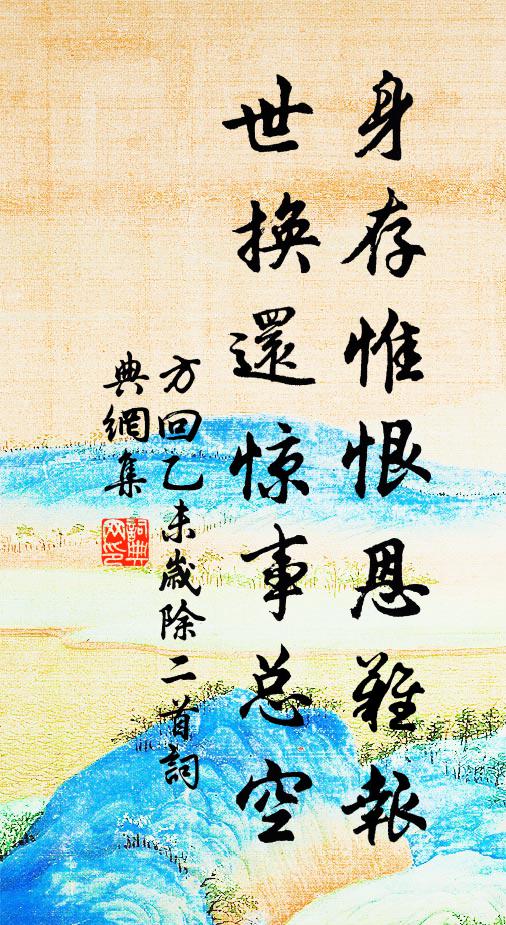 身存惟恨恩難報
世換還惊事总空
方回乙未歲除二首詞
典網集
詞典